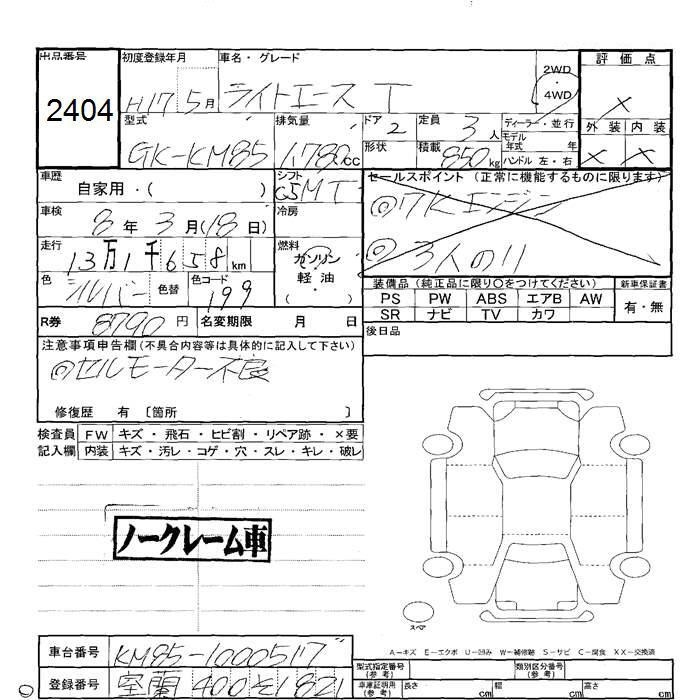 出品番号 初度登録年月 車名・グレード 評価点
2404 H17 5月 ライトエース T 2WD 4WD ×
型式 排気量 ドア 定員 ディーラー・並行 外装 内装
GK-KM85 1,780cc 2 3人 モデル年式 年 × ×
形状 積載 850kg ハンドル 左・右
車歴 シフト セールスポイント (正常に機能するものに限ります)
自家用・( ) C5MT ◎7Kエンジン
車検 冷房
8年3月(18日) ◎3人のり
走行 燃料
13万1千658km ガソリン
軽油
( )
色 シルバー 色替 色コード 199
装備品 (純正品に限り〇をつけてください) 新車保証書
PS PW ABS エアB AW 有・無
SR ナビ TV カワ
R券 8790円 名変期限 月 日 後日品
注意事項申告欄 (不具合内容等は具体的に記入して下さい)
◎セルモーター不良
修復歴 有 〔箇所 〕
検査員 FW キズ・飛石・ヒビ割・リペア跡・×要
記入欄 内装 キズ・汚レ・コゲ・穴・スレ・キレ・破レ
ノークレーム車
スペア
A－キズ E－エクボ U－凹み W－補修跡 S－サビ C－腐食 XX－交換済
車台番号 KM85-1000517
型式指定番号(参考) 類別区分番号(参考)
登録番号 室蘭 400 そ 1821
車庫証明用(参考) 長さ cm 幅 cm 高さ cm